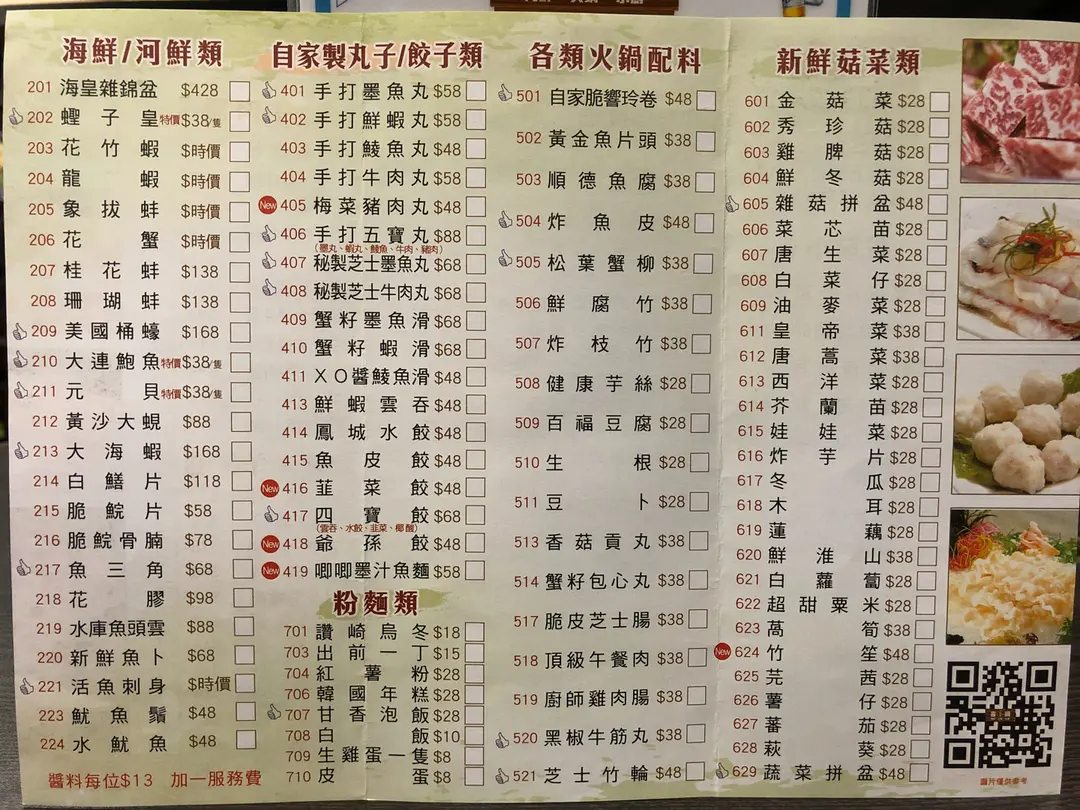 海鮮/河鮮類
201 海皇雜錦盆 $428
202 蟶子皇 特價$38/隻
203 花竹蝦 $時價
204 龍蝦 $時價
205 象拔蚌 $時價
206 花蟹 $時價
207 桂花蚌 $138
208 珊瑚蚌 $138
209 美國桶蠔 $168
210 大連鮑魚 特價$38/隻
211 元貝 特價$38/隻
212 黃沙大蜆 $88
213 大海蝦 $168
214 白鱔片 $118
215 脆鯇片 $58
216 脆鯇骨腩 $78
217 魚三角 $68
218 花膠 $98
219 水庫魚頭雲 $88
220 新鮮魚卜 $68
221 活魚刺身 $時價
223 魷魚鬚 $48
224 水魷魚 $48
醬料每位$13 加一服務費
自家製丸子/餃子類
401 手打墨魚丸 $58
402 手打鮮蝦丸 $58
403 手打鯪魚丸 $48
404 手打牛肉丸 $58
New 405 梅菜豬肉丸 $48
406 手打五寶丸 $88
(墨丸、蝦丸、鯪魚、牛肉、豬肉)
407 秘製芝士墨魚丸 $68
408 秘製芝士牛肉丸 $68
409 蟹籽墨魚滑 $68
410 蟹籽蝦滑 $68
411 XO醬鯪魚滑 $48
413 鮮蝦雲吞 $48
414 鳳城水餃 $48
415 魚皮餃 $48
New 416 韮菜餃 $48
417 四寶餃 $68
(雲吞、水餃、韭菜、椰醋)
New 418 爺孫餃 $48
New 419 唧唧墨汁魚麵 $58
粉麵類
701 讚崎烏冬 $18
703 出前一丁 $15
704 紅薯粉 $28
706 韓國年糕 $28
707 甘香泡飯 $28
708 白飯 $10
709 生雞蛋一隻 $8
710 皮蛋 $8
各類火鍋配料
501 自家脆響玲卷 $48
502 黃金魚片頭 $38
503 順德魚腐 $38
504 炸魚皮 $48
505 松葉蟹柳 $38
506 鮮腐竹 $38
507 炸枝竹 $38
508 健康芋絲 $28
509 百福豆腐 $28
510 生根 $28
511 豆卜 $28
513 香菇貢丸 $38
514 蟹籽包心丸 $38
517 脆皮芝士腸 $38
518 頂級午餐肉 $38
519 廚師雞肉腸 $38
520 黑椒牛筋丸 $38
521 芝士竹輪 $48
新鮮菇菜類
601 金菇菜 $28
602 秀珍菇 $28
603 雞脾菇 $28
604 鮮冬菇 $28
605 雜菇拼盆 $48
606 菜芯苗 $28
607 唐生菜 $28
608 白菜仔 $28
609 油麥菜 $28
611 皇帝菜 $38
612 唐蒿菜 $38
613 西洋菜 $28
614 芥蘭苗 $28
615 娃娃菜 $28
616 炸芋片 $28
617 冬瓜 $28
618 木耳 $28
619 蓮藕 $28
620 鮮淮山 $38
621 白蘿蔔 $28
622 超甜粟米 $28
623 萵筍 $38
New 624 竹笙 $48
625 芫茜 $28
626 薯仔 $28
627 蕃茄 $28
628 萩葵 $28
629 蔬菜拼盆 $48
圖片僅供參考